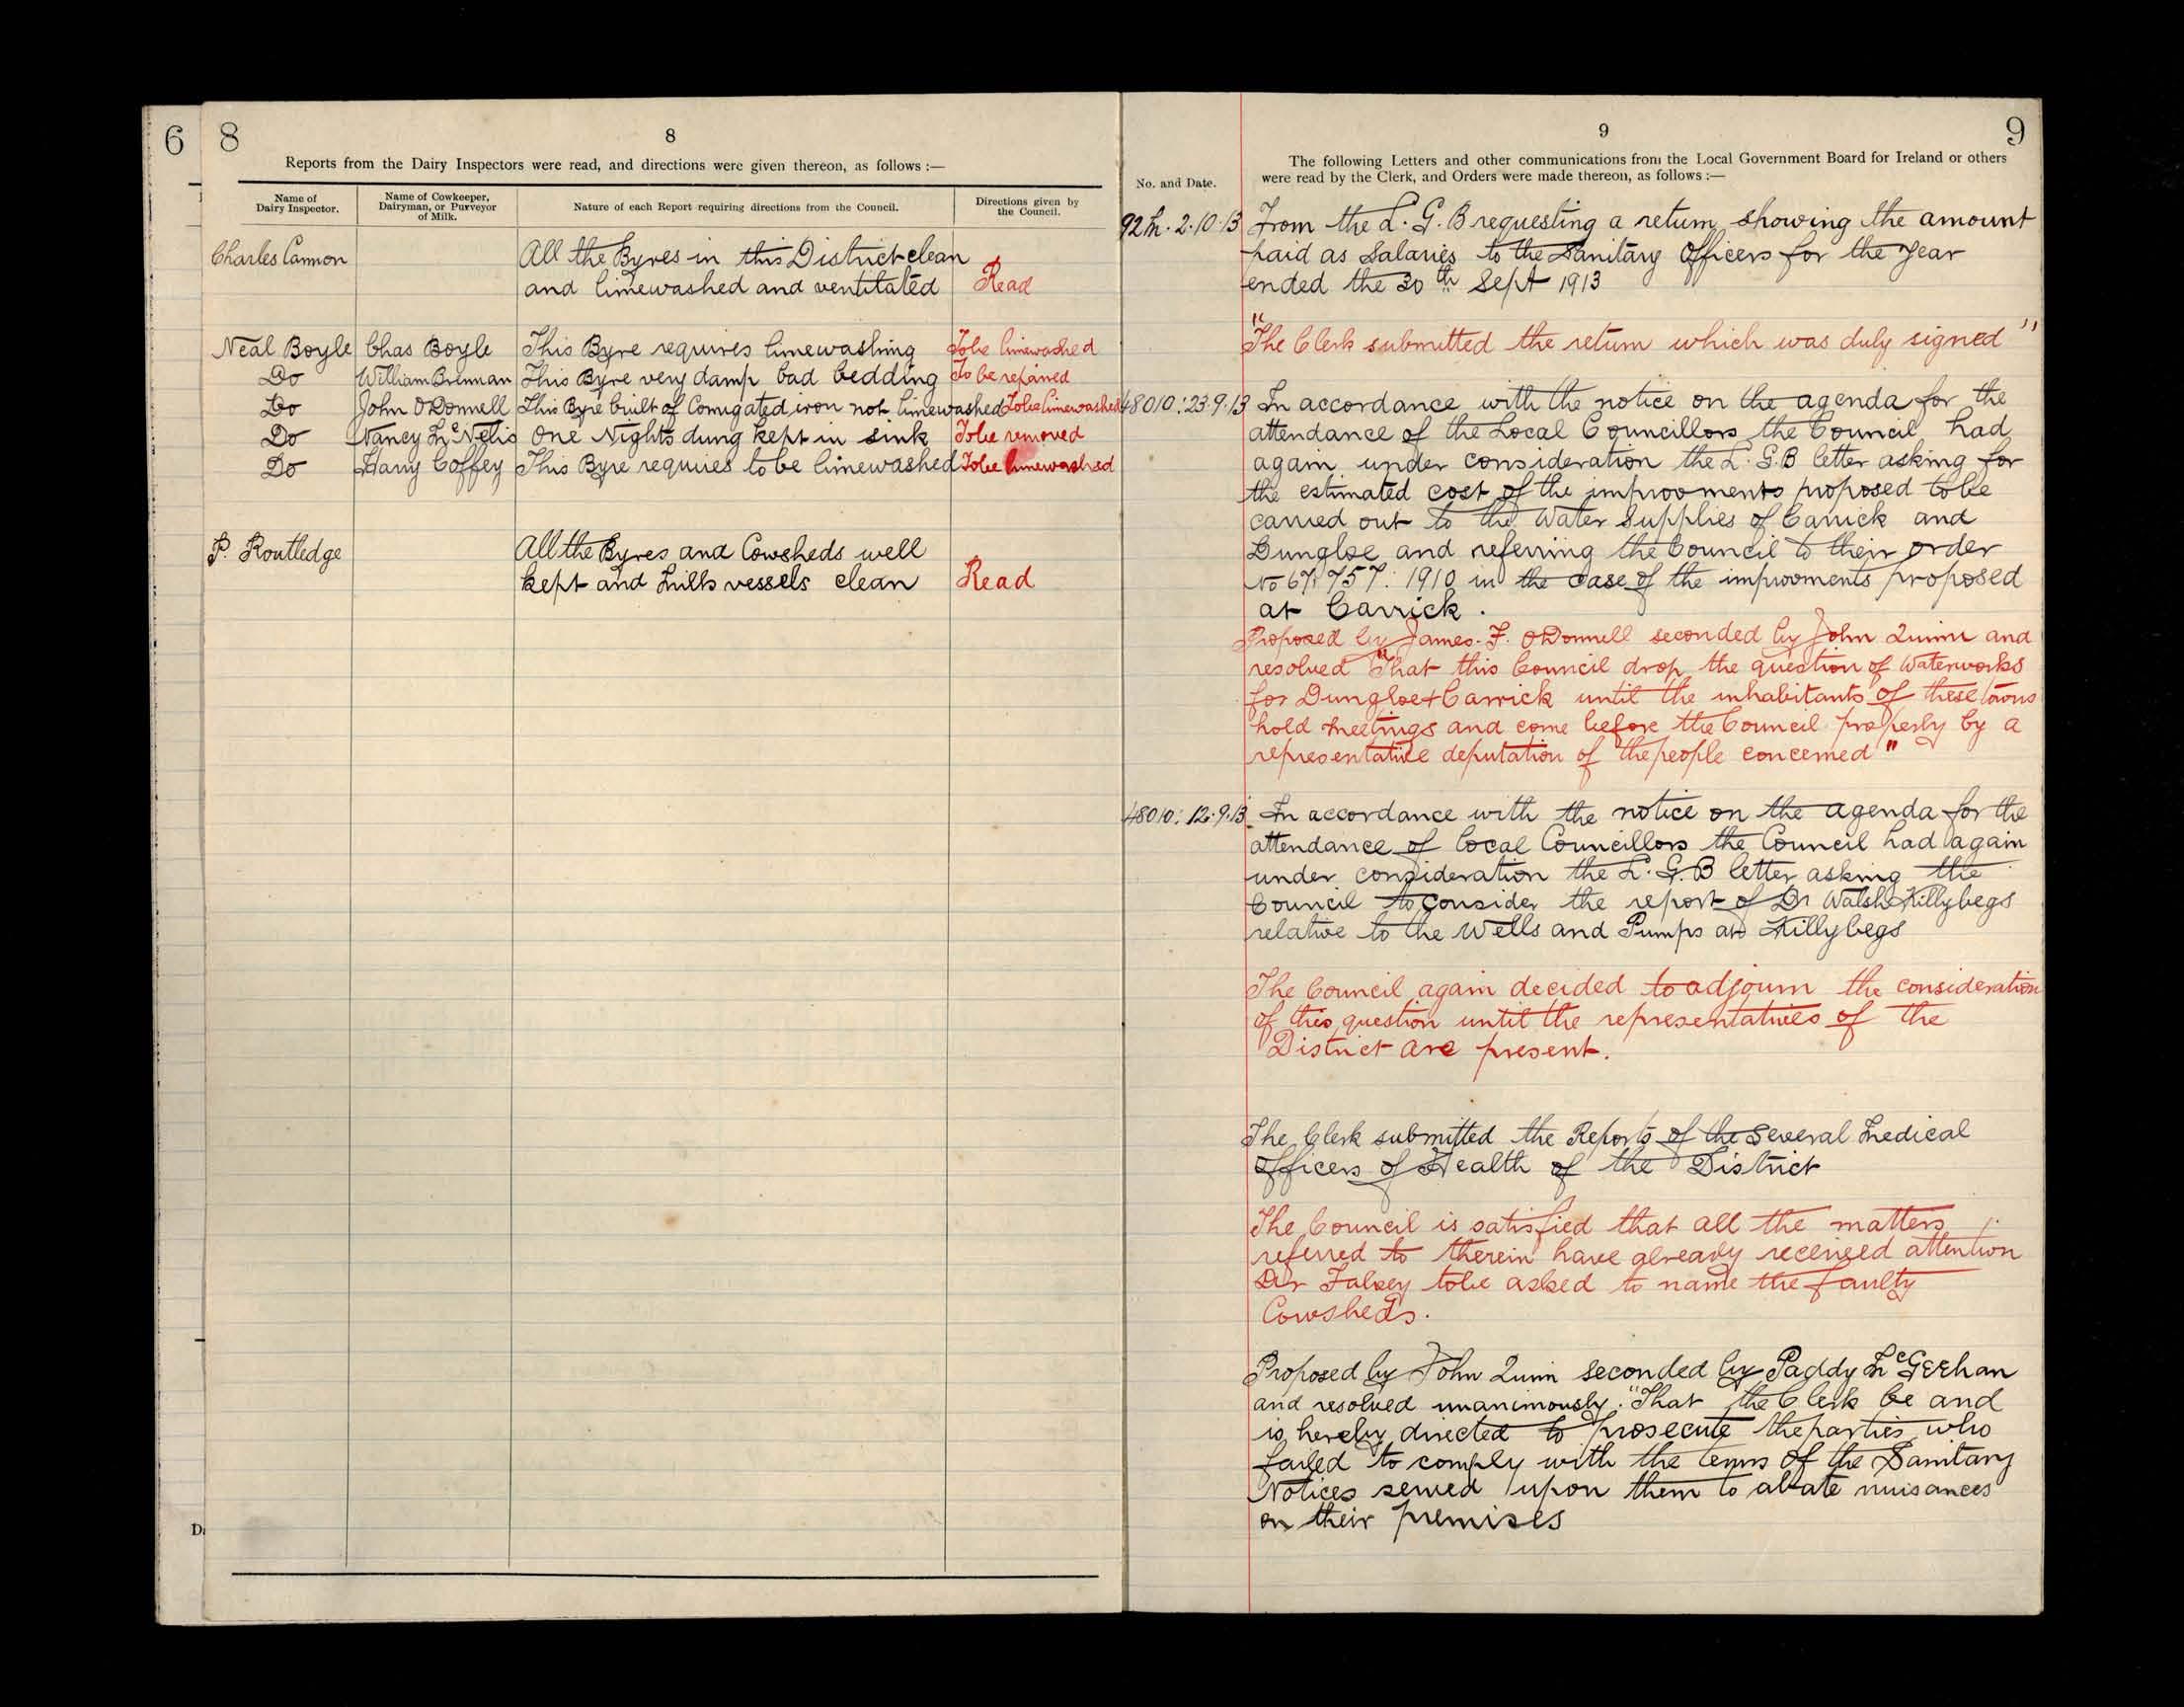 6
8
8
Reports from the Dairy Inspectors were read, and directions were given thereon, as follows :—
Name of Dairy Inspector. Name of Cowkeeper, Dairyman, or Purveyor of Milk. Nature of each Report requiring directions from the Council. Directions given by the Council.
Charles Cannon All the Byres in this District clean
and limewashed and ventitated Read
Neal Boyle Chas Boyle This Byre requires limewashing To be limewashed
Do William Brennan This Byre very damp bad bedding To be repaired
Do John O'Donnell This Byre built of Corrugated iron not limewashed To be limewashed
Do Nancy McNelis One Nights dung kept in sink To be removed
Do Harry Coffey This Byre requires to be limewashed To be limewashed
P. Routledge All the Byres and Cowsheds well
kept and Milk vessels clean Read
D.
9
9
The following Letters and other communications from the Local Government Board for Ireland or others
were read by the Clerk, and Orders were made thereon, as follows :—
No. and Date.
92M. 2.10.13 From the L.G.B requesting a return showing the amount
paid as Salaries to the Sanitary Officers for the Year
ended the 30th Sept 1913
"The Clerk submitted the return which was duly signed"
48010:23.9.13 In accordance with the notice on the agenda for the
attendance of the Local Councillors the Council had
again under consideration the L.G.B letter asking for
the estimated cost of the improvements proposed to be
carried out to the Water Supplies of Carrick and
Dungloe and referring the Council to their order
No 1910 in the case of the improvments proposed
at Carrick.
Proposed by James. F. O'Donnell seconded by John Quinn and
resolved "That this Council drop the question of Waterworks
for Dungloe & Carrick until the inhabitants of these towns
hold meetings and come before the Council properly by a
representative deputation of the people concerned"
48010: 12.9.13 In accordance with the notice on the agenda for the
attendance of local Councillors the Council had again
under consideration the L.G.B letter asking the
Council to consider the report of Dr Walsh Killybegs
relative to the Wells and Pumps at Killybegs
The Council again decided to adjourn the consideration
of this question until the representatives of the
District are present.
The Clerk submitted the Reports of the Several Medical
Officers of Health of the District
The Council is satisfied that all the matters
referred to therein have already received attention
Dr Falvey to be asked to name the faulty
Cowsheds.
Proposed by John Quinn seconded by Paddy McGeehan
and resolved unanimously. "That the Clerk be and
is hereby directed to prosecute the parties who
failed to comply with the terms of the Sanitary
Notices served upon them to abate nuisances
on their premises